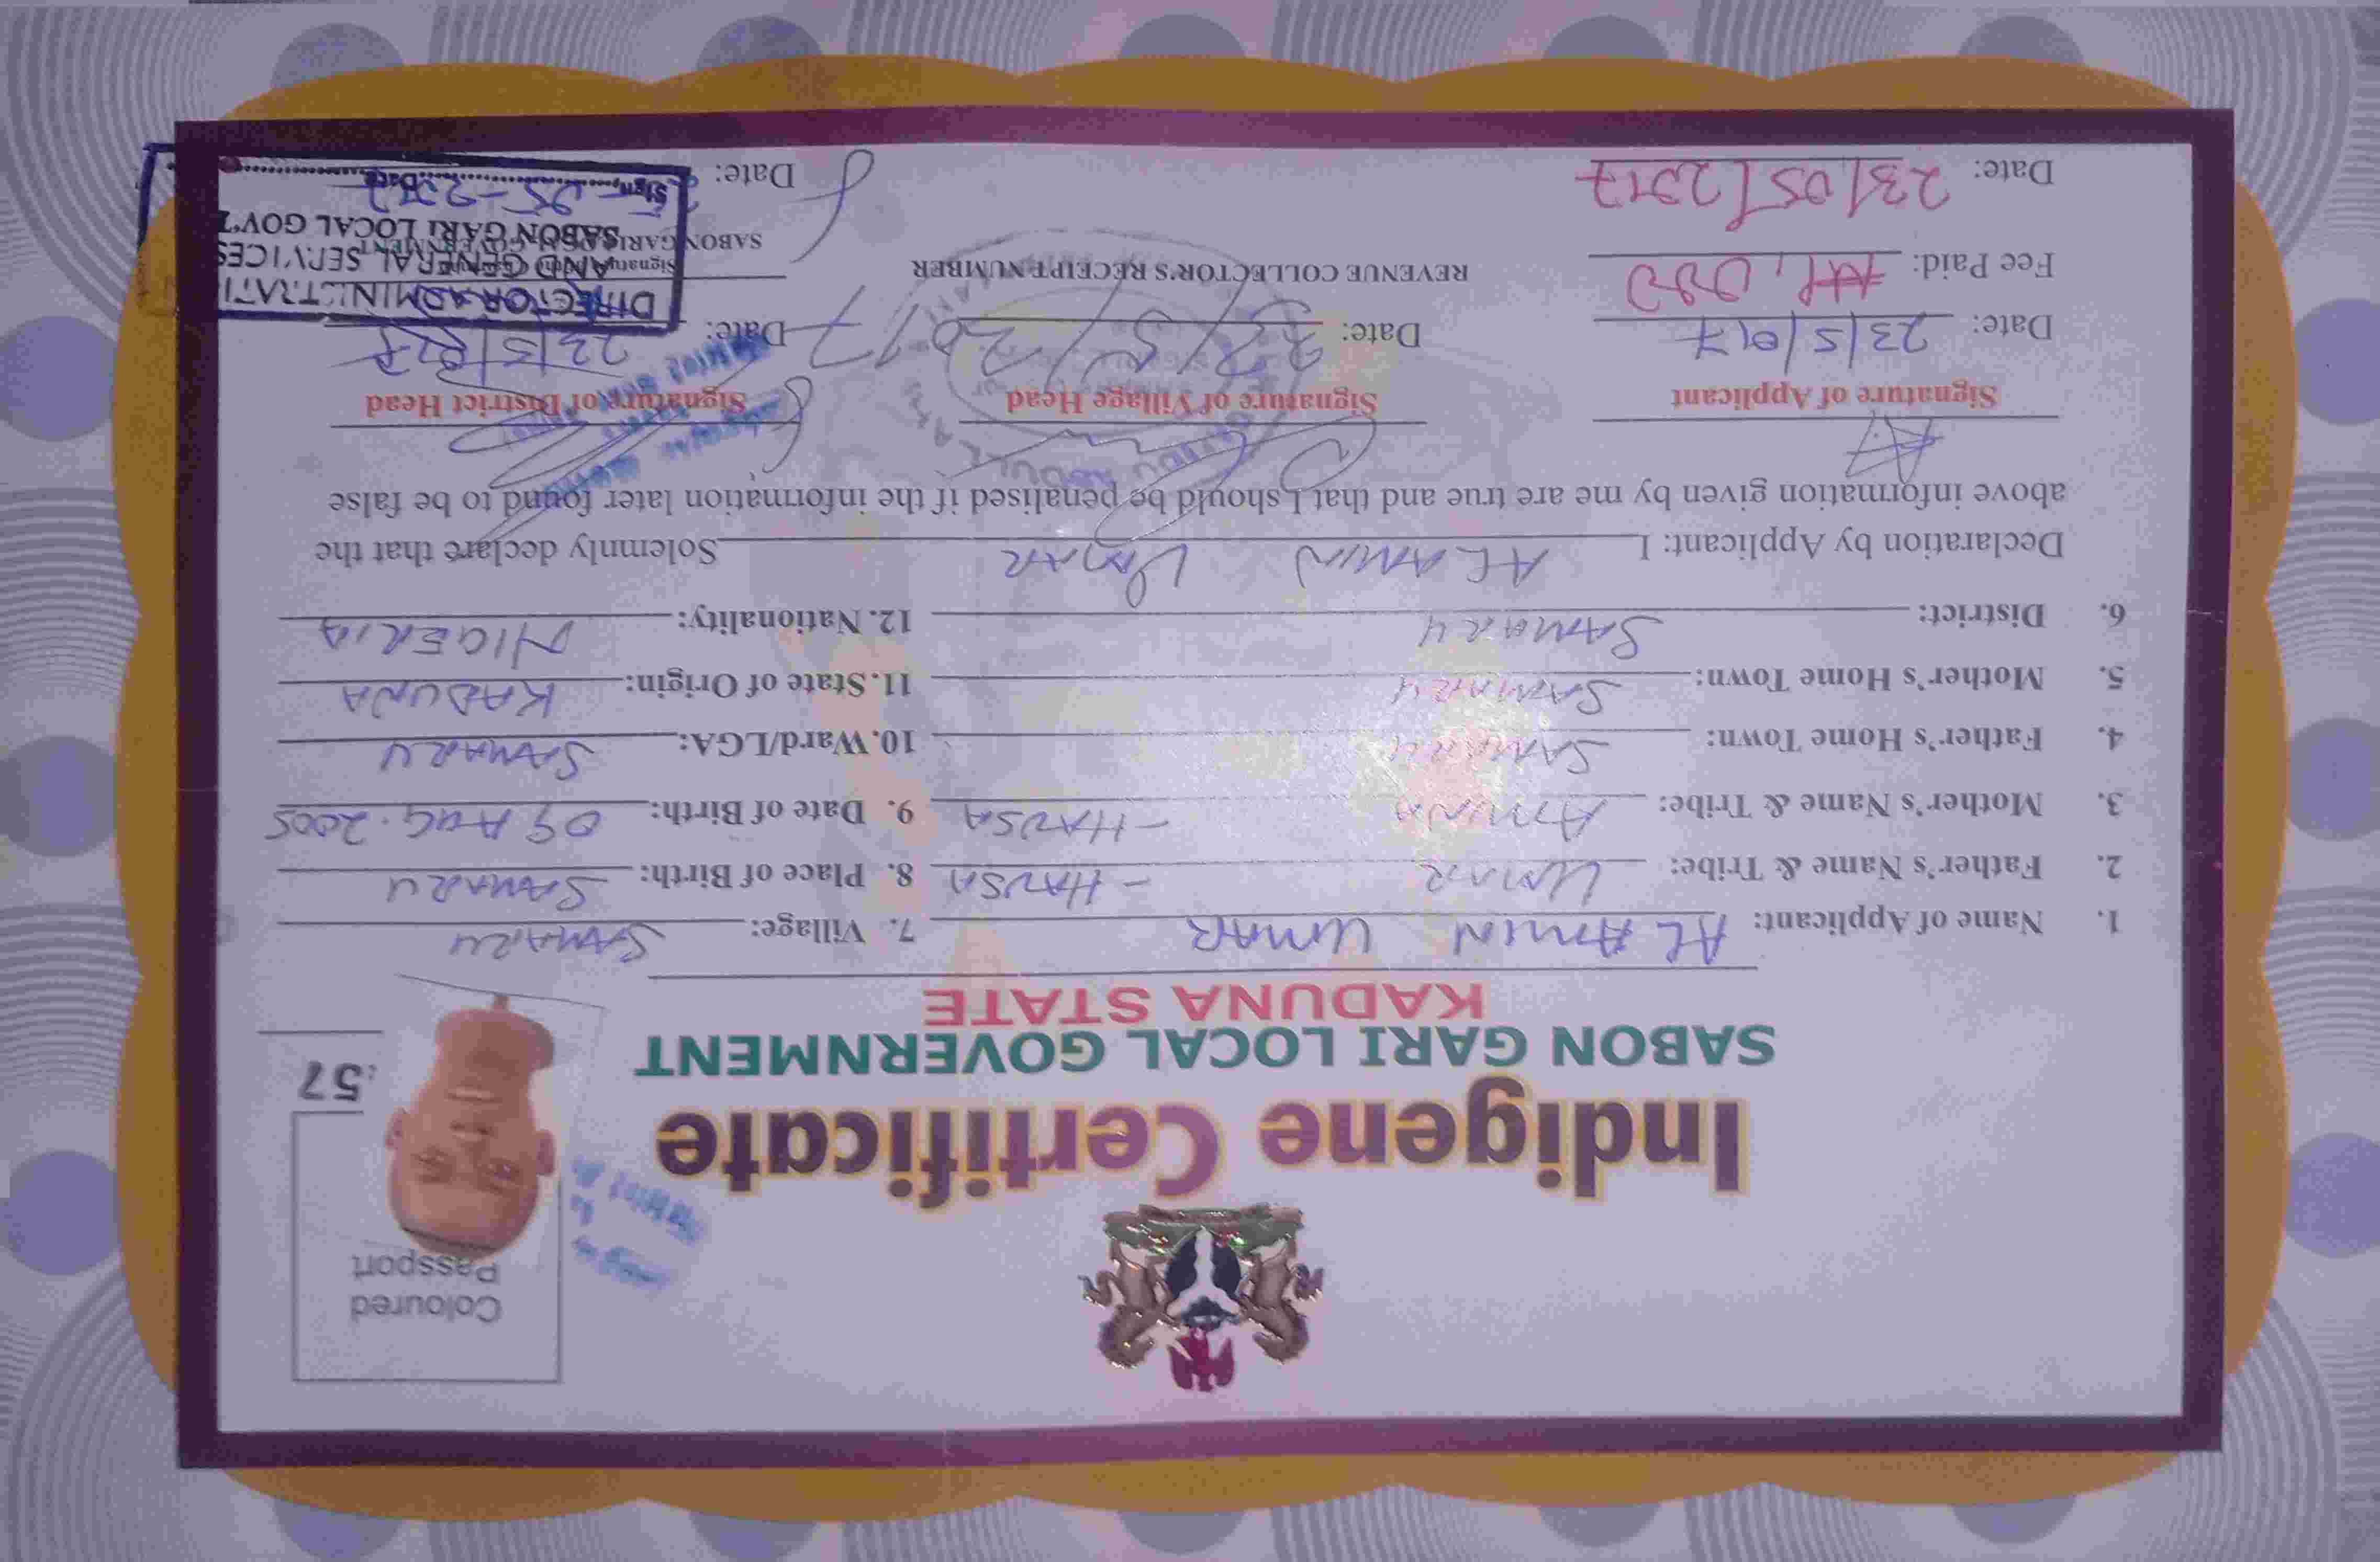 Coloured
Passport
Indigene Certificate
SABON GARI LOCAL GOVERNMENT
KADUNA STATE
57
1. Name of Applicant: AL AMIN UMAR
2. Father's Name & Tribe: UMAR - HAUSA
3. Mother's Name & Tribe: AMINA - HAUSA
4. Father's Home Town: SAMARU
5. Mother's Home Town: SAMARU
6. District: SAMARU
7. Village: SAMARU
8. Place of Birth: SAMARU
9. Date of Birth: 09 AUG. 2005
10. Ward/LGA: SAMARU
11. State of Origin: KADUNA
12. Nationality: NIGERIA
Declaration by Applicant: I AL AMIN UMAR Solemnly declare that the
above information given by me are true and that I should be penalised if the information later found to be false
Signature of Applicant
Date: 23/5/017
Signature of Village Head
Date: 23/5/2017
Signature of District Head
Date: 23/5/017
Fee Paid:
Date: 23/05/2017
REVENUE COLLECTOR'S RECEIPT NUMBER
SABON GARI LOCAL GOVERNMENT
Date:
DIRECTOR ADMINISTRATI
AND GENERAL SERVICES
SABON GARI LOCAL GOV'T
Sign Date